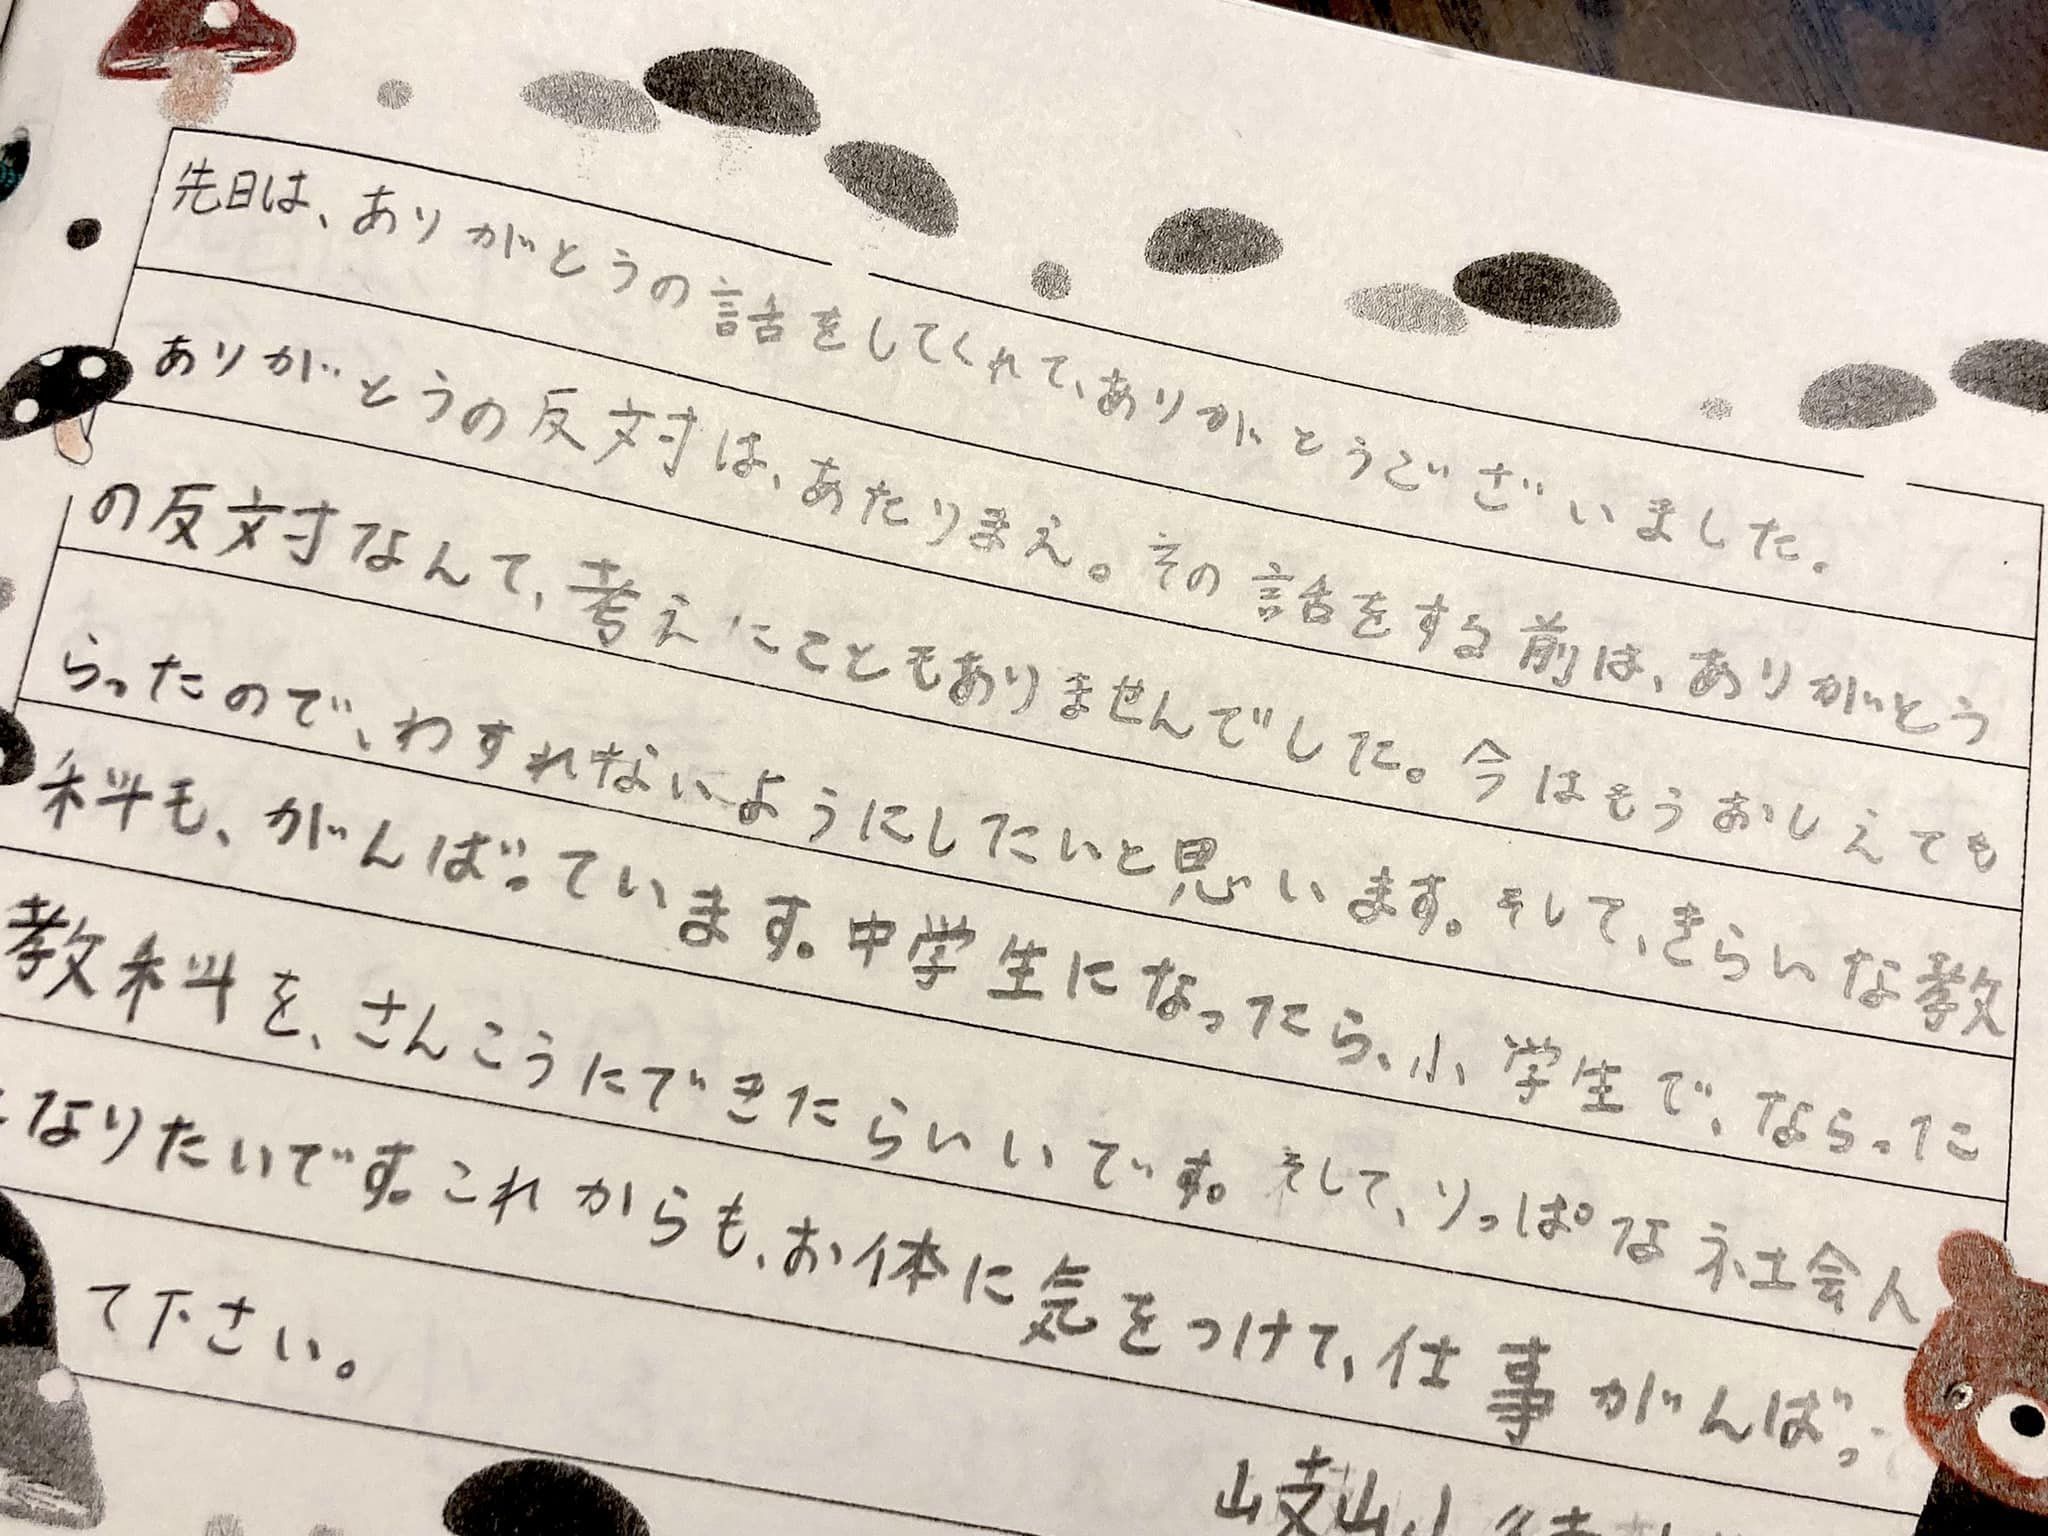 先日は、ありがとうの話をしてくれて、ありがとうございました。
ありがとうの反対は、あたりまえ。その話をする前は、ありがとう
の反対なんて、考えにこともありませんでした。今はもうおしえても
らったので、わすれないようにしたいと思います。そして、きらいな教
科も、がんばっています。中学生になったら、小学生で、ならった
教科を、さんこうにできたらいいです。そして、りっぱな社会人
なりたいです。これからも、お体に気をつけて、仕事がんばっ
て下さい。
岐山小